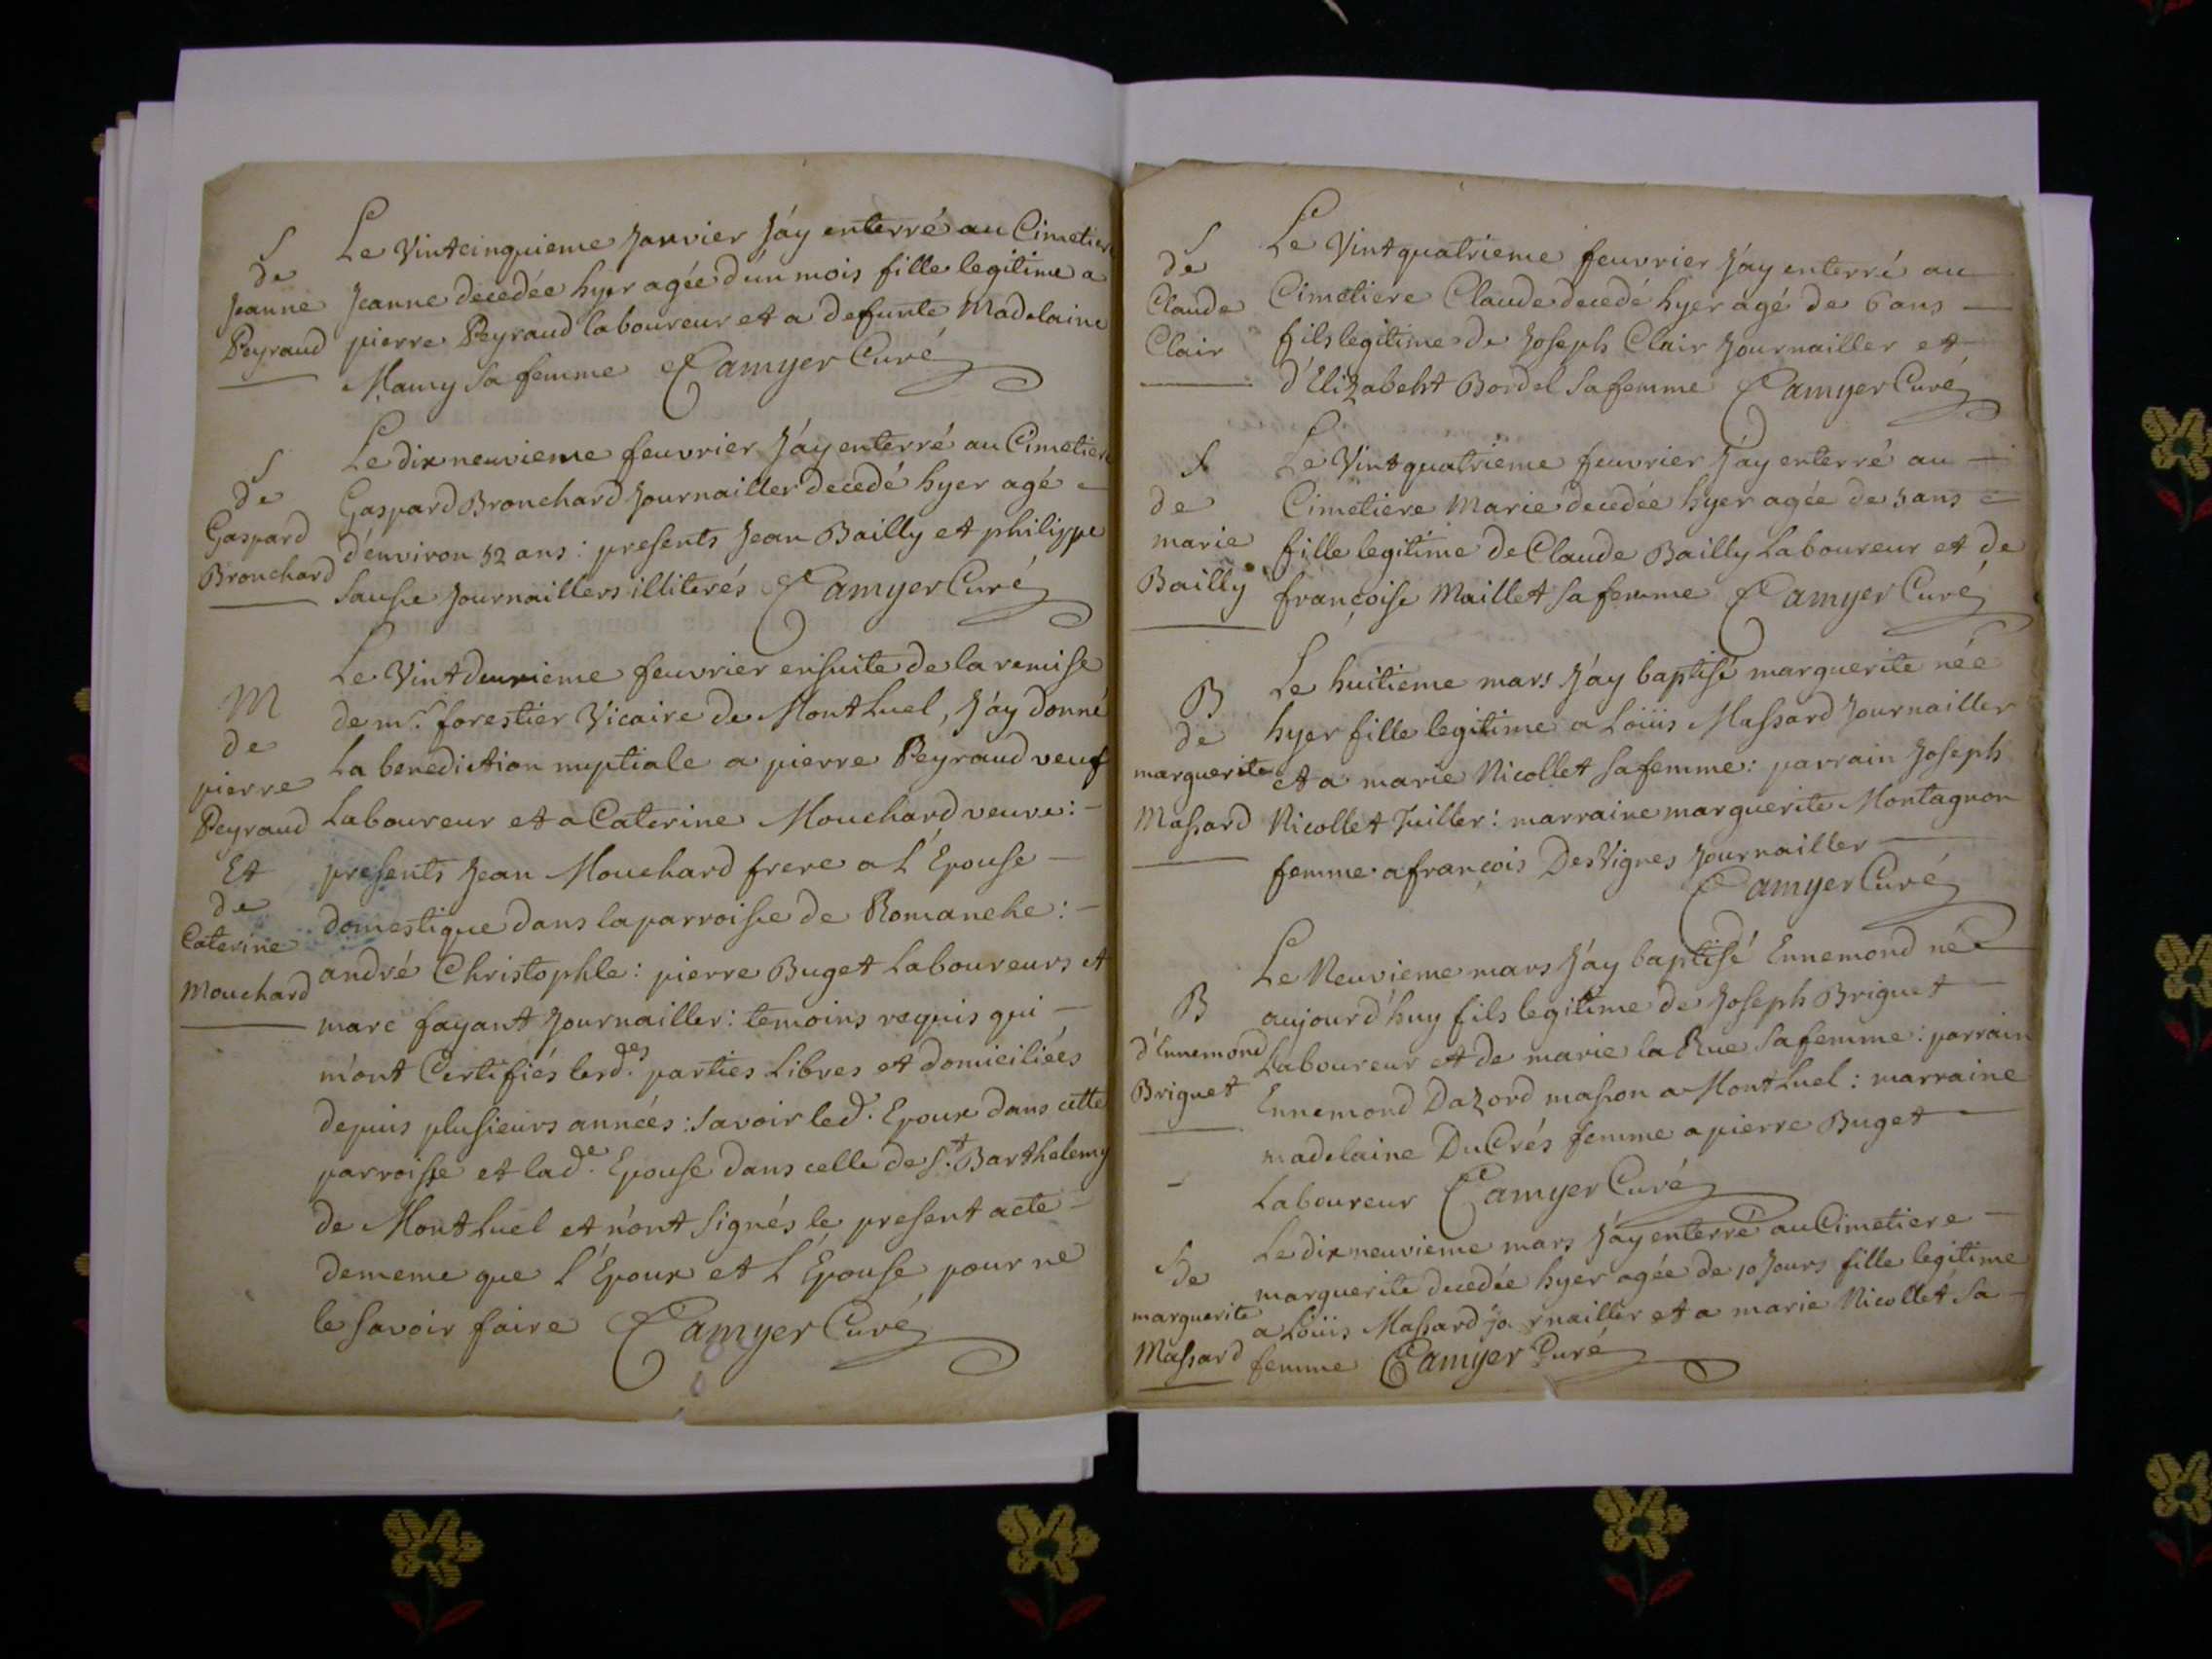 S
de
Jeanne
Peyraud
Le Vintcinquieme Janvier J'ay enterré au Cimetiere
Jeanne decedée hyer agée d'un mois fille legitime a
pierre Peyraud laboureur et a defunte Madelaine
Mamy sa femme Camyer Curé
S
de
Gaspard
Bronchard
Le dixneuvieme feuvrier J'ay enterré au Cimetiere
Gaspard Bronchard Journailler decedé hyer agé
d'environ 52 ans : presents Jean Bailly et philippe
Sausse Journaillers illiterés Camyer Curé
M
de
pierre
Peyraud
Et
de
Caterine
Mouchard
Le Vintdeuxieme feuvrier ensuite de la remise
de mr. forestier Vicaire de Montluel, J'ay donné
La benediction nuptiale a pierre Peyraud veuf
Laboureur et a Caterine Mouchard veuve : -
presents Jean Mouchard frere a l'Epouse -
domestique dans la parroisse de Romaneche : -
andré Christophle : pierre Buget Laboureurs et
marc fayant Journailler : temoins requis qui -
m'ont Certifiés lesd.des parties Libres et domiciliées
depuis plusieurs années : savoir led. Epoux dans cette
parroisse et lad.e Epouse dans celle de S.t Barthelemy
de Montluel et n'ont signés le present acte -
dememe que l'Epoux et l'Epouse pour ne
le savoir faire Camyer Curé
S
de
Claude
Clair
Le Vintquatrieme feuvrier J'ay enterré au
Cimetiere Claude decedé hyer agé de 6 ans -
fils legitime de Joseph Clair Journailler et
d'Elizabeht Bordel sa femme Camyer Curé
S
de
marie
Bailly
Le Vintquatrieme feuvrier J'ay enterré au -
Cimetiere Marie decedée hyer agée de 5 ans
fille legitime de Claude Bailly Laboureur et de
françoise Maillet sa femme Camyer Curé
B
de
marguerite
Massard
Le huitieme mars J'ay baptisé marguerite née
hyer fille legitime a Loüis Massard Journailler
et a marie Nicollet sa femme : parrain Joseph
Nicollet Tuiller : marraine marguerite Montagnon
femme a françois DesVignes Journailler -
Camyer Curé
B
d'Ennemond
Briguet
Le Neuvieme mars J'ay baptisé Ennemond né
aujourd'huy fils legitime de Joseph Briguet -
Laboureur et de marie la Rue sa femme : parrain
Ennemond Dazord masson a Montluel : marraine
madelaine DuCrés femme a pierre Buget -
Laboureur Camyer Curé
S
de
marguerite
Massard
Le dixneuvieme mars J'ay enterré au Cimetiere -
marguerite decedée hyer agée de 10 Jours fille legitime
a Loüis Massard jo rnailler et a marie Nicollet sa -
femme Camyer Curé